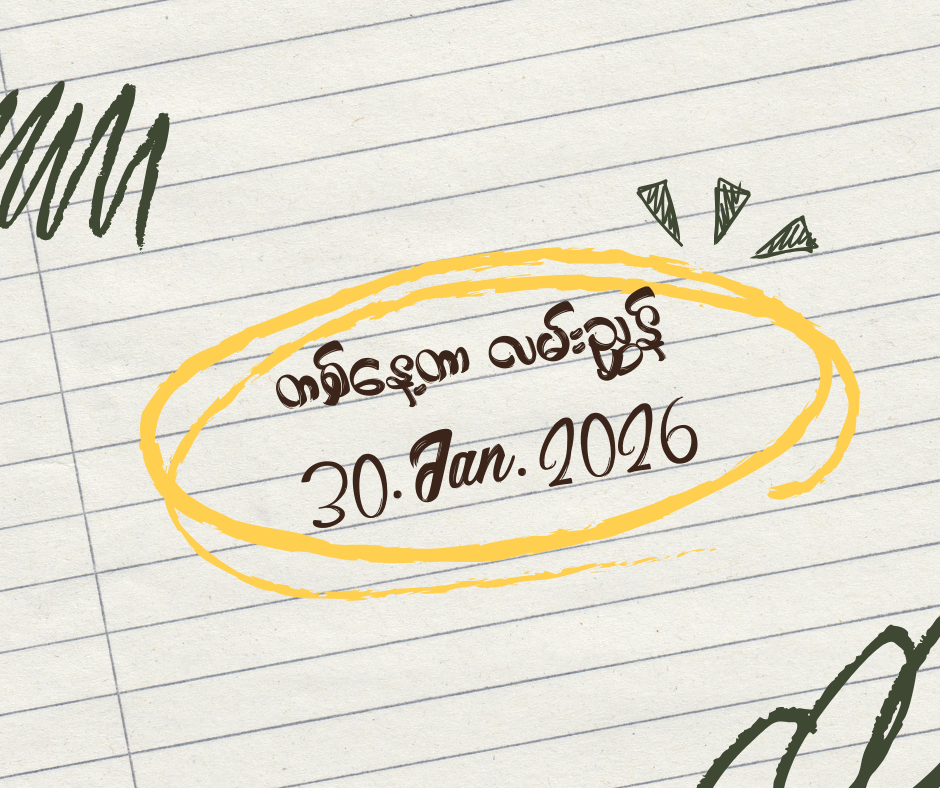 တစ်နေ့တာ လမ်းညွှန်
30.Jan.2026